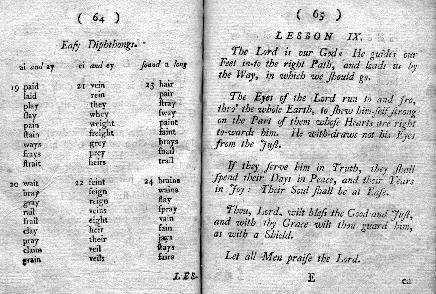 ( 64 )
Eaſy Diphthongs.
ai and ay ei and ey ſound a long
19 paid 21 vein 23 hair
laid rein pair
play they ſtray
ſlay whey ſway
pain weight paint
ſtain freight faint
ways grey brays
frays prey ſnails
ſtrait heirs trail
20 wait 22 feint 24 brains
bray feign wains
gray reign ſlay
rail veins ſpray
frail eight vain
clay heir fain
pray their jays
claim veil ſtays
grain veils fairs
LES-
( 65 )
LESSON IX.
The Lord is our God: He guides our
Feet in-to the right Path, and leads us by
the Way, in which we ſhould go.
The Eyes of the Lord run to and fro,
thro' the whole Earth, to ſhew him-ſelf ſtrong
on the Part of them whoſe Hearts are right
to-wards him. He with-draws not his Eyes
from the Juſt.
If they ſerve him in Truth, they ſhall
ſpend their Days in Peace, and their Years
in Joy: Their Soul ſhall be at Eaſe.
Thou, Lord, wilt bleſs the Good and Juſt,
and with thy Grace wilt thou guard him,
as with a Shield.
Let all Men praise the Lord.
E